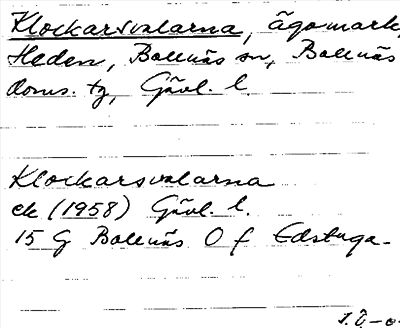 Klockarsvalarna, ägomark,
Heden, Bollnäs sn, Bollnäs
doms. tg, Gävl. l.
Klockarsvalarna
ek (1958) Gävl. l.
15 G Bollnäs O f Edstuga.